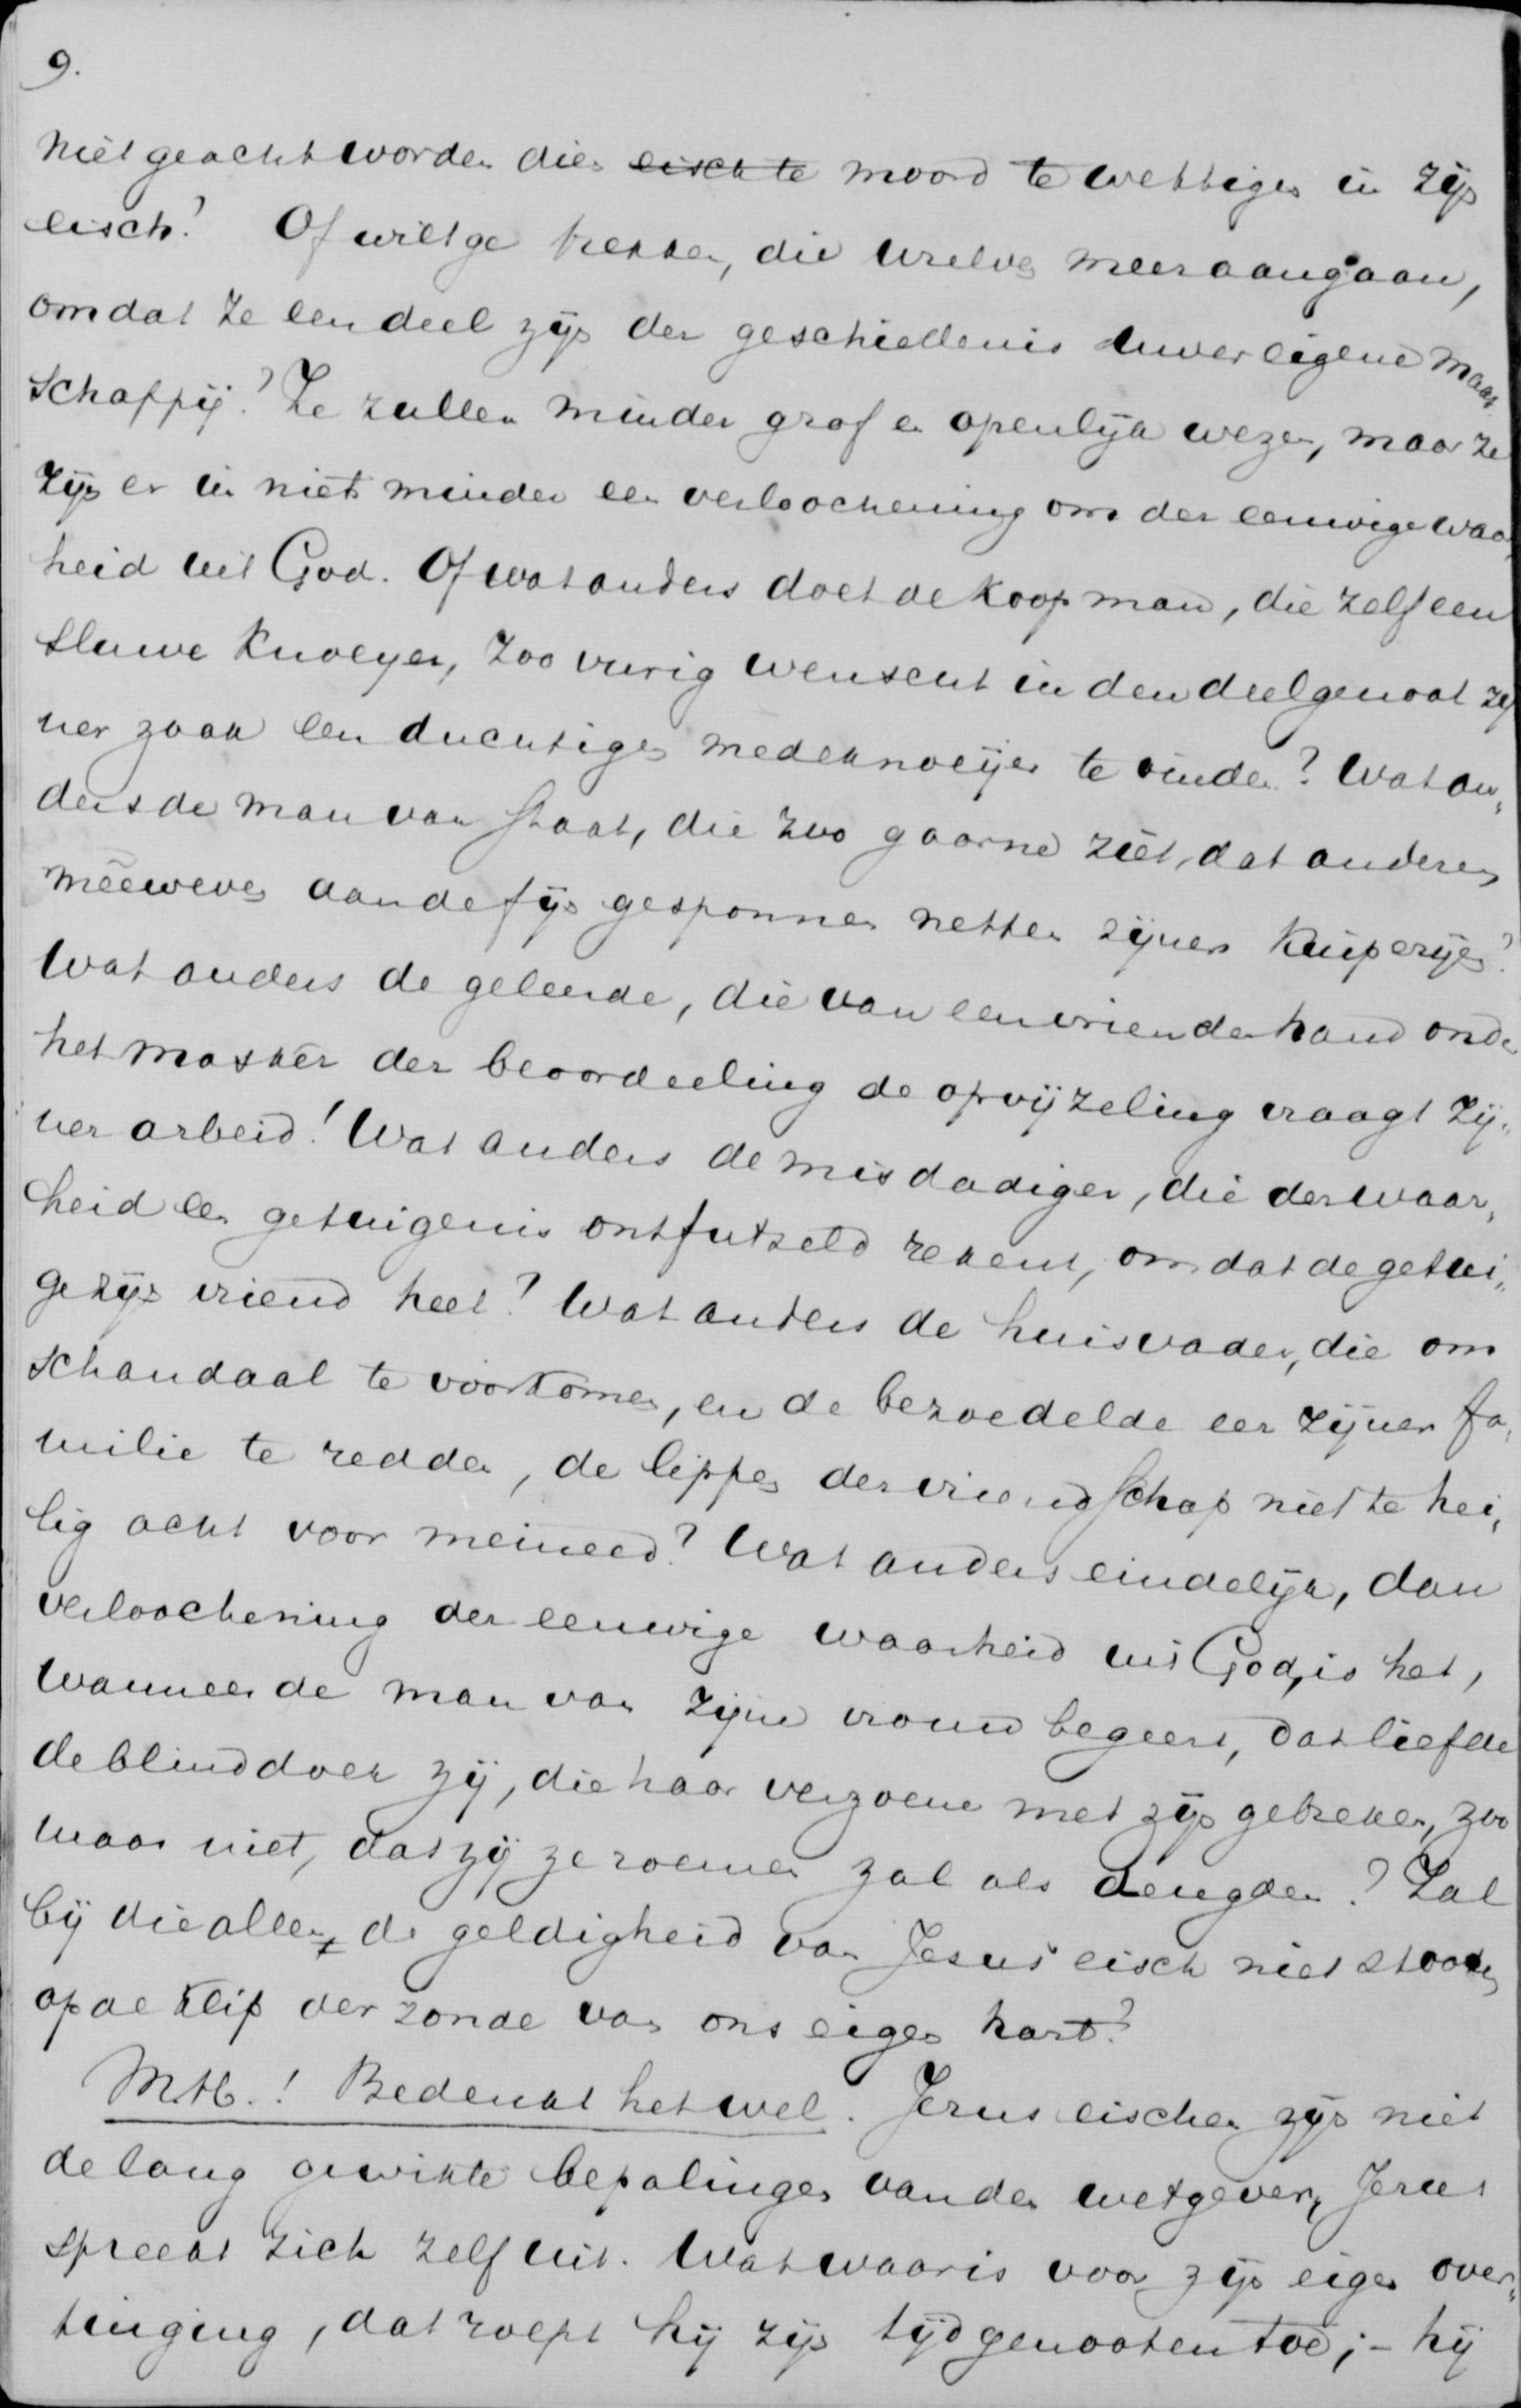 9.
niet geacht worden dien eischte moord te wettigen in zijn
eisch? Of wilt ge trekken, die Uzelve meer aangaan,
omdat ze een deel zijn der geschiedenis Uwer eigene Maat„
schappij? Ze zullen minder grof en openlijk wezen, maar ze
zijn er in niets minder een verloochening om der eeuwige waar„
heid uit God. Of wat anders doet de Koopman, die zelf een
sluwe Knoeyer, zoo vurig wenscht in den deelgenoot zij„
ner zaak een duchtigen medeknoeijer te vinden? Wat an„
ders de man van Staat, die zoo gaarne ziet, dat anderen
meêweven aan de fijn gesponnen netten zijner Kuiperijen?
Wat anders de geleerde, die van een vriendenhand onder
het masker der beoordeeling de opvijzeling vraagt zij„
ner arbeid! Wat anders de misdadiger, die der waar„
heid een getuigenis ontfutseld rekent, omdat de getui„
ge zijn vriend heet? Wat anders de huisvader, die om
schandaal te voorkomen, en de bezoedelde eer zijner fa„
milie te redden, de lippen der vriendschap niet te hei„
lig acht voor meineed? Wat anders eindelijk, dan
verloochening der eeuwige waarheid uit God, is het,
wanneer de man van zijne vrouw begeert, dat liefde
de blinddoek zij, die haar verzoene met zijn gebreken, zoo
maar niet, dat zij ze roemen zal als deugden? Zal
bij die allen de geldigheid van Jesus' eisch niet stooten
op de Klip der zonde van ons eigen hart?
M.H.! Bedenkt het wel. Jezus eischen zijn niet
de lang gewikte bepalingen van den wetgever, Jezus
spreekt zich zelf uit. Wat waar is voor zijn eigen over„
tuiging, dat roept hij zijn tijdgenooten toe; – hij